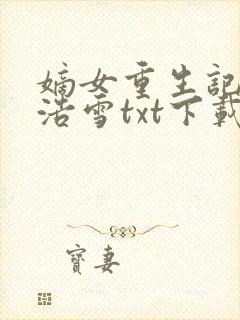 嫡女重生記
浩雪txt下載
寶妻